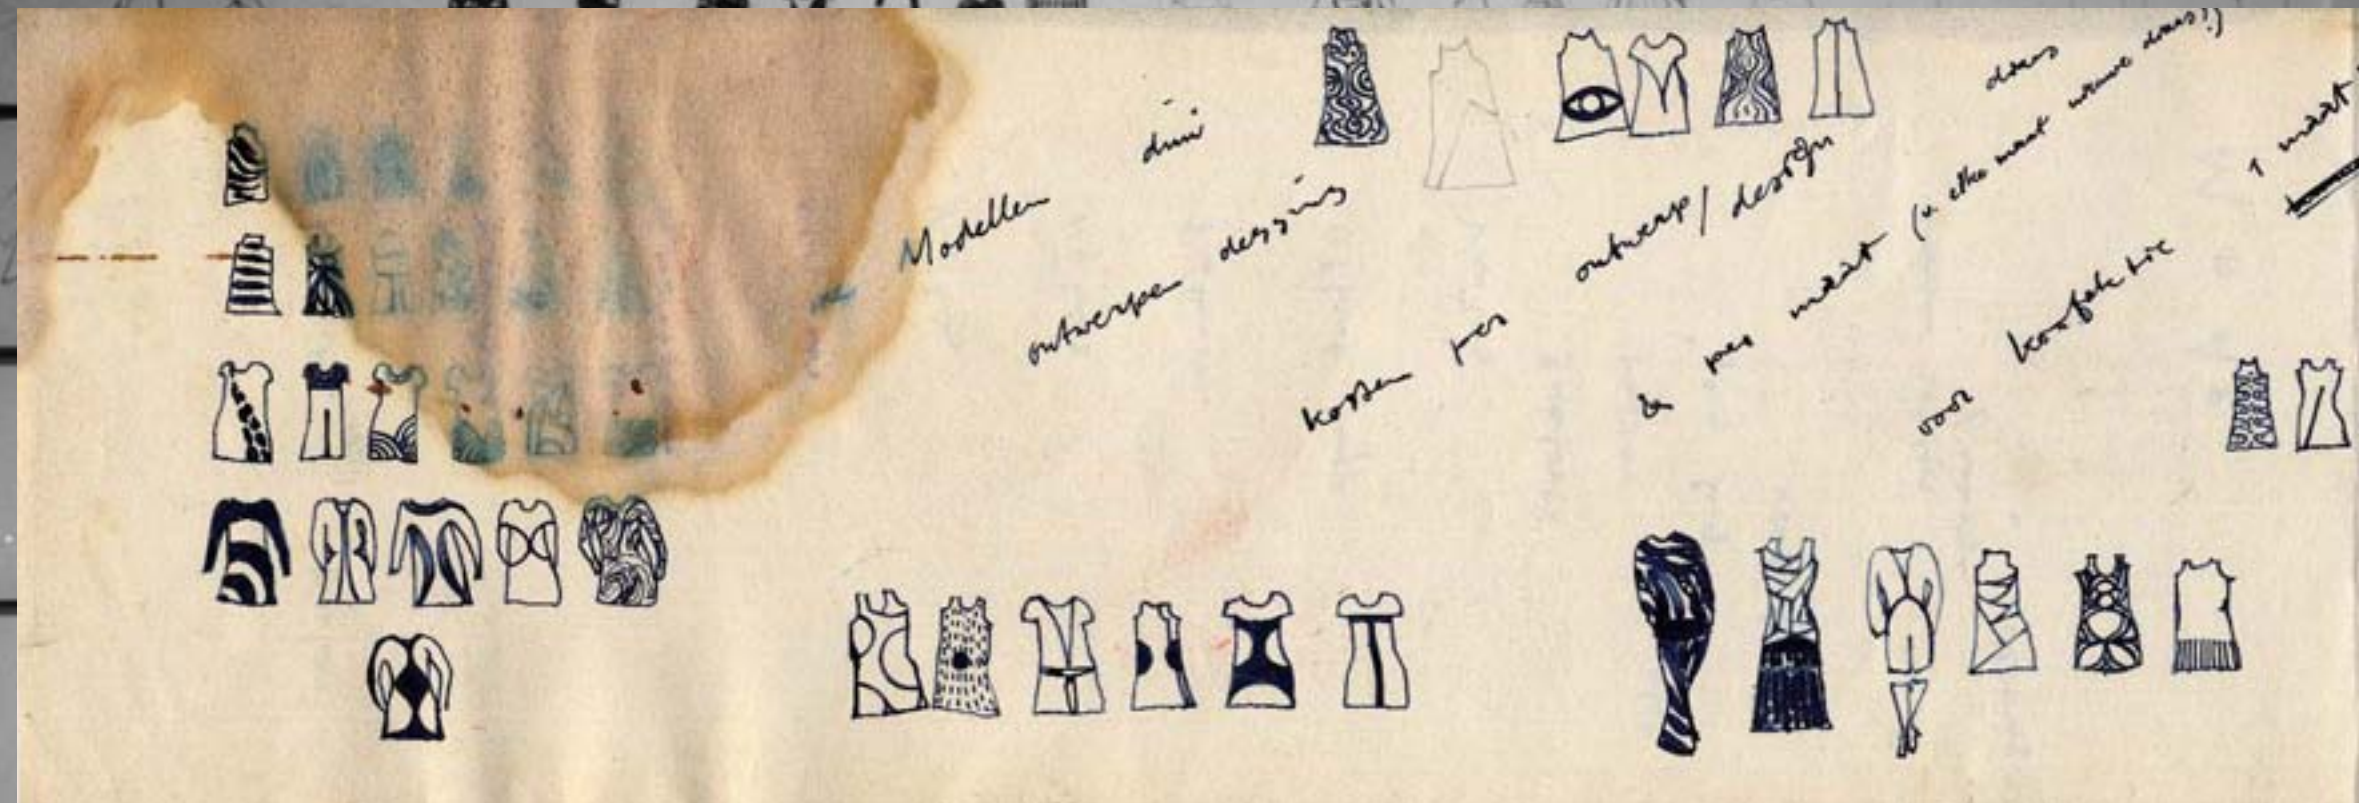 Modellen
ontwerpen dessins
kosten per ontwerp/design
& per maat (u elke maat nieuwe
voor konfektie
1 maat